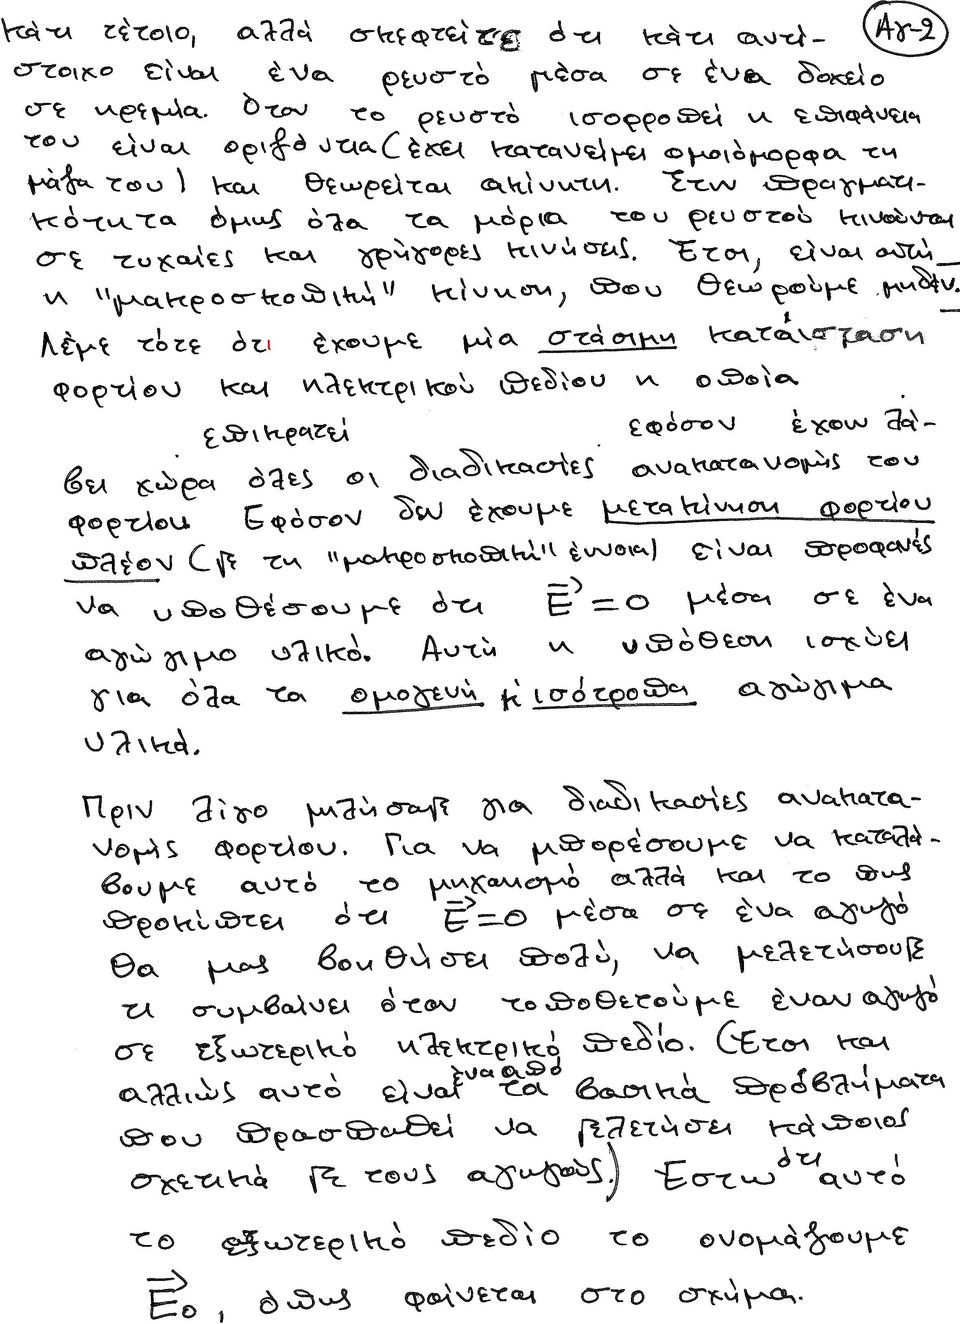 κάτι τέτοιο, αλλά σκεφτείτε ότι κάτι αντί- Αγ-2
στοιχο είναι ένα ρευστό μέσα σε ένα δοχείο
σε ηρεμία. Όταν το ρευστό ισορροπεί η επιφάνεια
του είναι οριζόντια (έχει κατανείμει ομοιόμορφα τη
μάζα του) και θεωρείται ακίνητη. Στην πραγματι-
κότητα όμως όλα τα μόρια του ρευστού κινούνται
σε τυχαίες και γρήγορες κινήσεις. Έτσι, είναι αυτή
η "μακροσκοπική" κίνηση, που θεωρούμε μηδέν.
Λέμε τότε ότι έχουμε μία στάσιμη κατάσταση
φορτίου και ηλεκτρικού πεδίου η οποία
επικρατεί εφόσον έχουν λά-
βει χώρα όλες οι διαδικασίες ανακατανομής του
φορτίου. Εφόσον δεν έχουμε μετακίνηση φορτίου
πλέον (με τη "μακροσκοπική" έννοια) είναι προφανές
να υποθέσουμε ότι E⃗=0 μέσα σε ένα
αγώγιμο υλικό. Αυτή η υπόθεση ισχύει
για όλα τα ομογενή κ' ισότροπα αγώγιμα
υλικά.
Πριν λίγο μιλήσαμε για διαδικασίες ανακατα-
νομής φορτίου. Για να μπορέσουμε να καταλά-
βουμε αυτό το μηχανισμό αλλά και το πως
προκύπτει ότι E⃗=0 μέσα σε ένα αγωγό
θα μας βοηθήσει πολύ, να μελετήσουμε
τι συμβαίνει όταν τοποθετούμε έναν αγωγό
σε εξωτερικό ηλεκτρικό πεδίο. (Έτσι και
αλλιώς αυτό είναι ένα από τα βασικά προβλήματα
που προσπαθεί να μελετήσει κάποιος
σχετικά με τους αγωγούς.) Έστω ότι αυτό
το εξωτερικό πεδίο το ονομάζουμε
E⃗₀, όπως φαίνεται στο σχήμα.